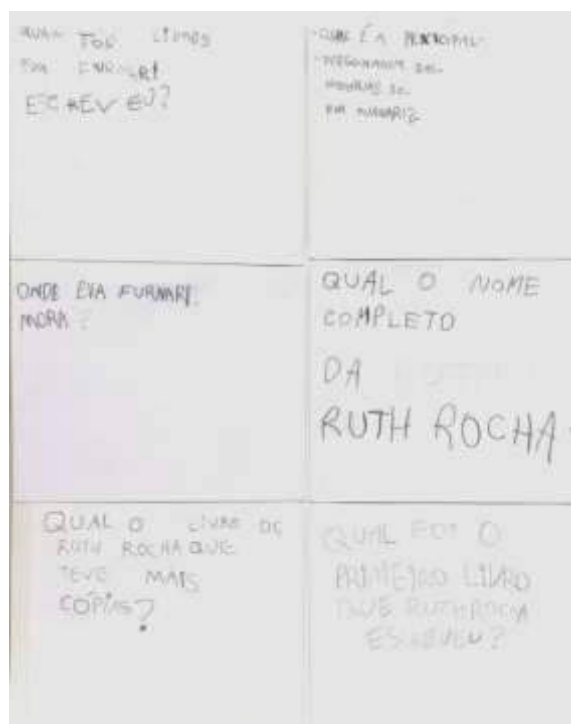 LIVROS
EVA FURNARI
ESCREVEU?
QUAL É A PRINCIPAL
EVA FURNARI?
ONDE EVA FURNARI
MORA?
QUAL O NOME
COMPLETO
DA
RUTH ROCHA
QUAL O LIVRO DE
RUTH ROCHA QUE
TEVE MAIS
CÓPIAS?
QUAL FOI O
PRIMEIRO LIVRO
QUE RUTH ROCHA
ESCREVEU?